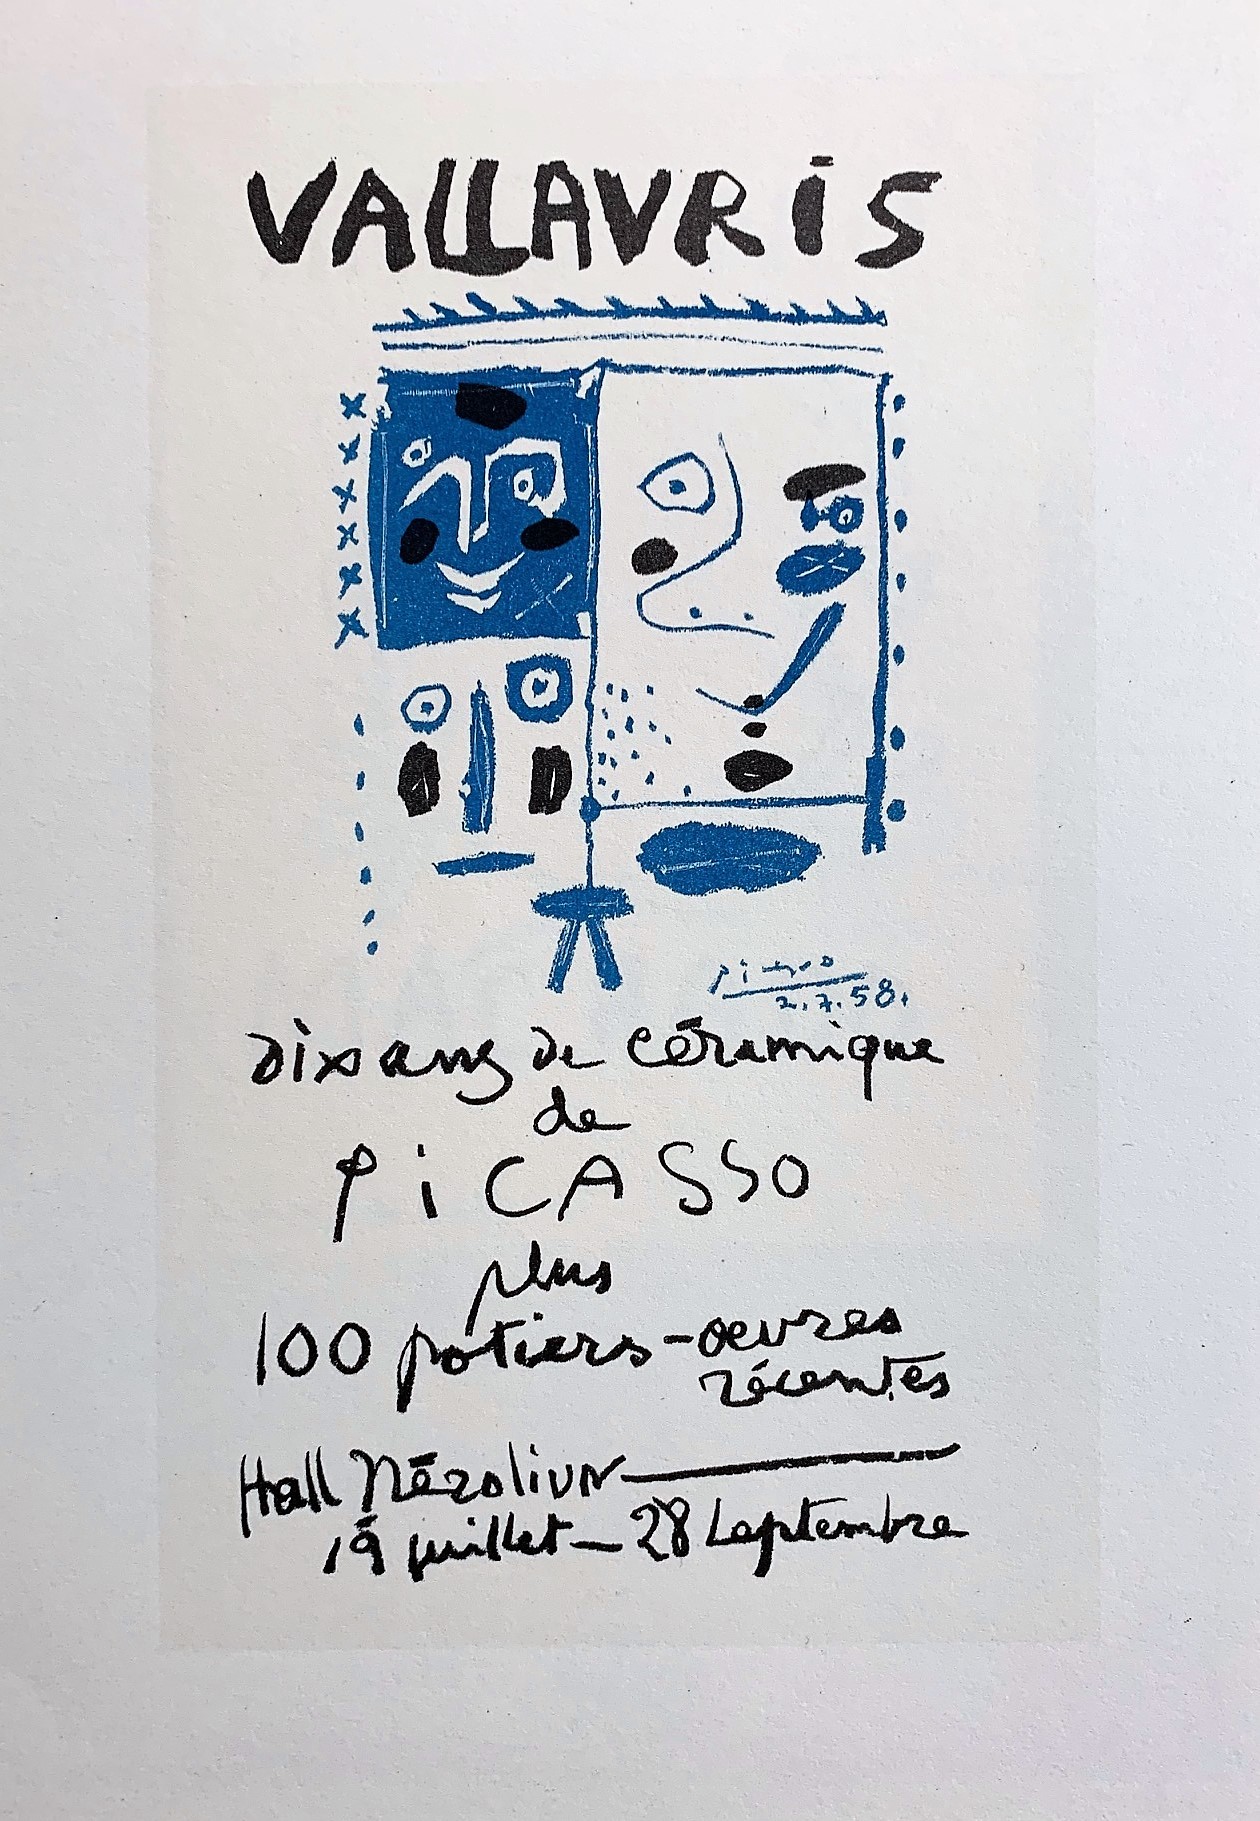 VALLAURiS
Picasso
2.7.58.
Dix ans de céramique
de
PiCASSO
plus
100 potiers-oevres
récentes
Hall Nérolium
19 juillet - 28 Septembre